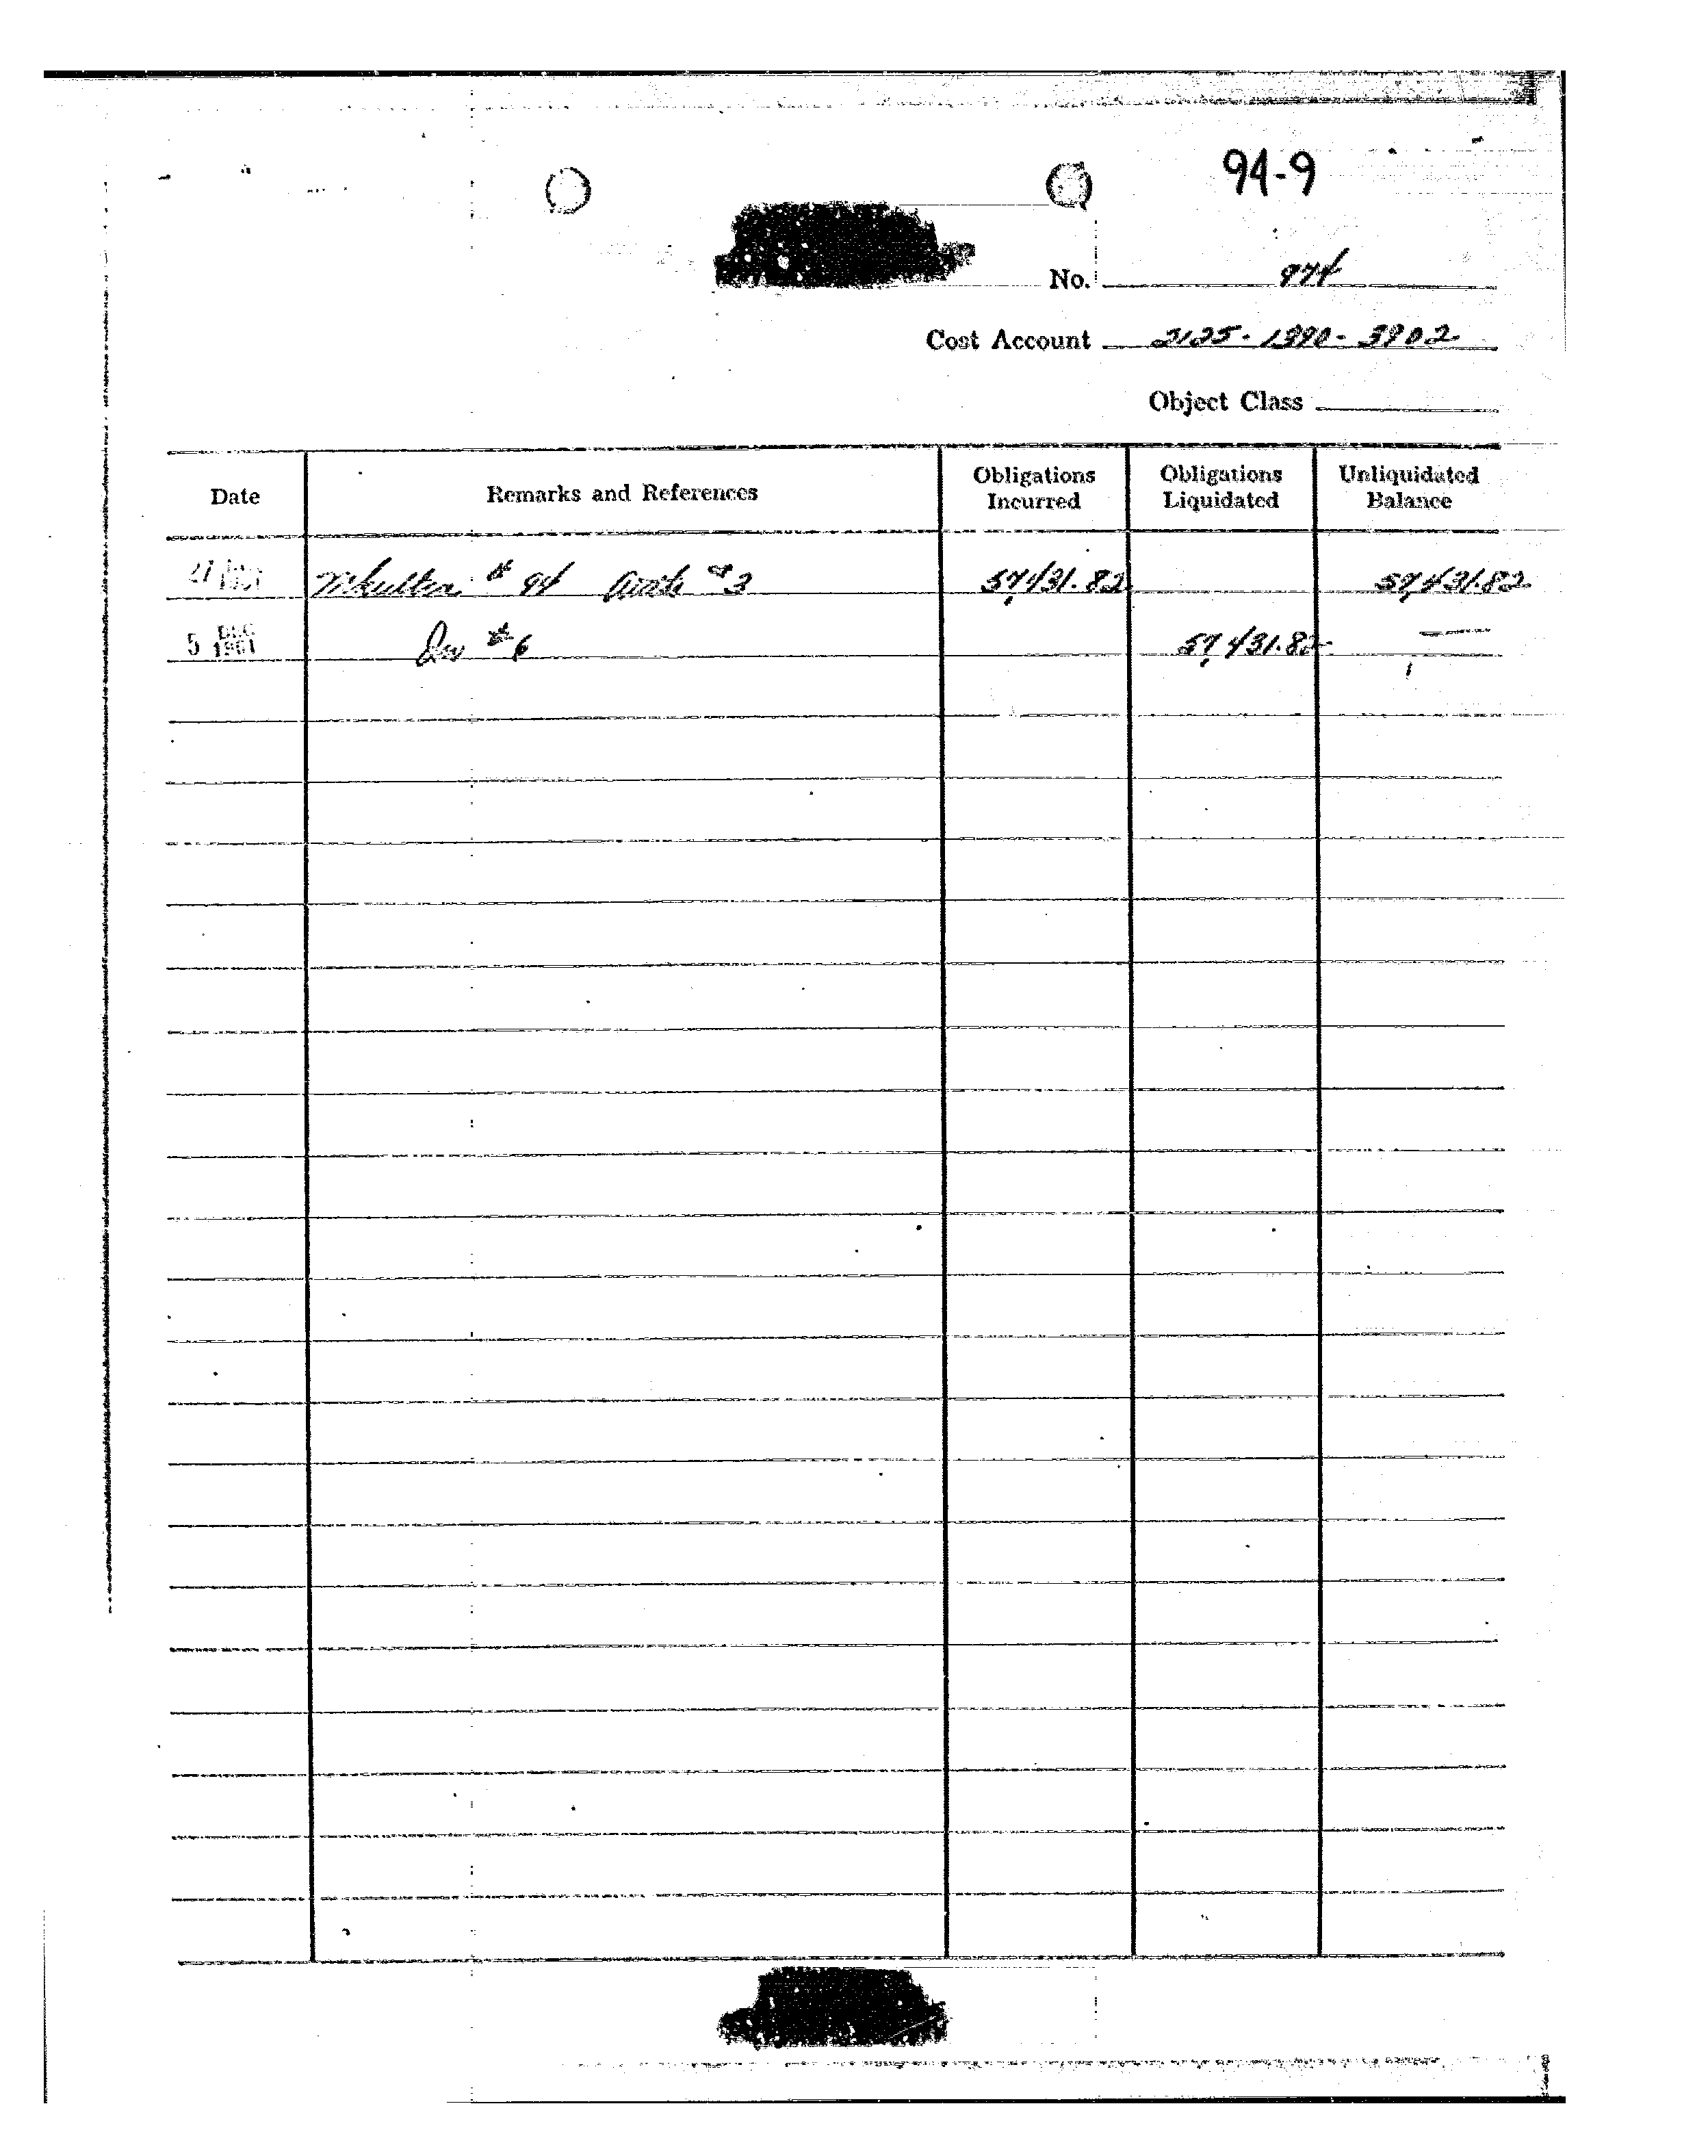 94-9
No. 974
Cost Account 2125-1390-3902
Object Class
Date Remarks and References Obligations Incurred Obligations Liquidated Unliquidated Balance
27 1961 Mkultra # 94 #3 57,431.82 57,431.82
5 DEC 1961 Inv #6 57,431.82 —